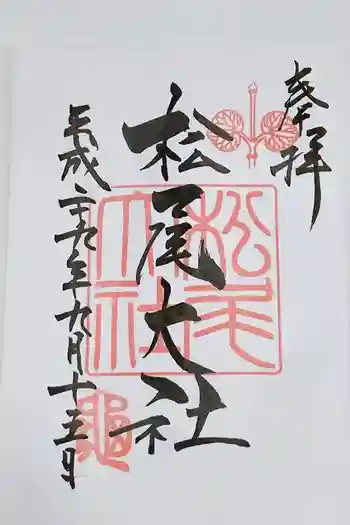 奉拝
松尾大社
平成二十九年九月十五日
松尾大社